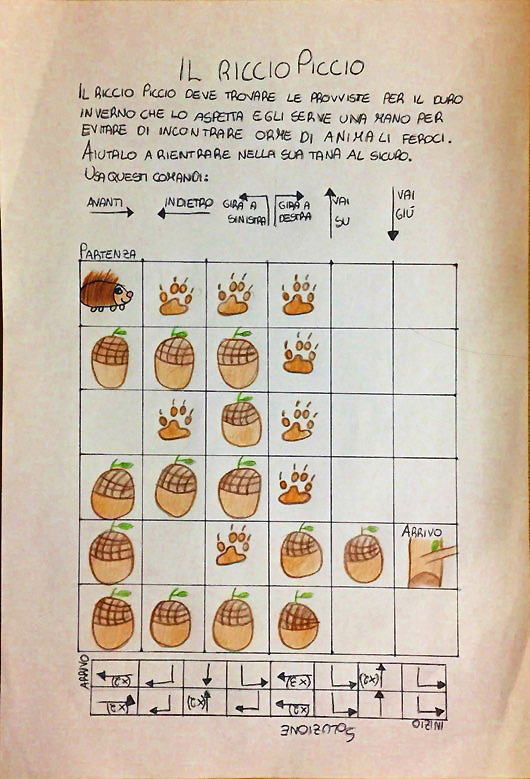 IL RICCIO PICCIO
IL RICCIO PICCIO DEVE TROVARE LE PROVVISTE PER IL DURO
INVERNO CHE LO ASPETTA E GLI SERVE UNA MANO PER
EVITARE DI INCONTRARE ORME DI ANIMALI FEROCI.
AIUTALO A RIENTRARE NELLA SUA TANA AL SICURO.
USA QUESTI COMANDI:
AVANTI
INDIETRO
GIRA A
SINISTRA
GIRA A
DESTRA
VAI
SU
VAI
GIÙ
PARTENZA
ARRIVO
ARRIVO
(x2) (x3) (x2)
(x2) (x2) (x2)
INIZIO
SOLUZIONE